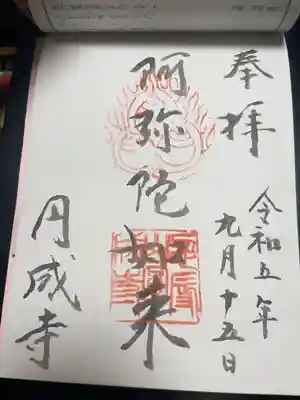 奉拝
令和五年
九月十五日
阿弥陀如来
円成寺